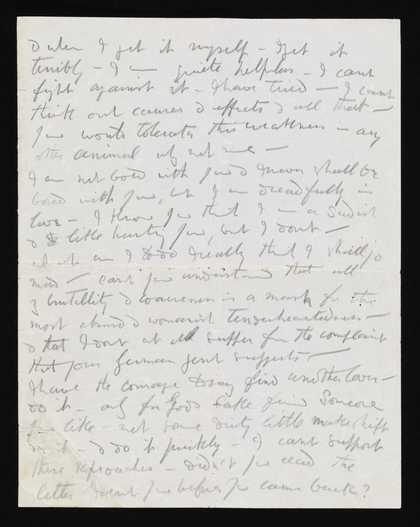 & when I get it myself – I get it
terribly – I am quite helpless – I can't
fight against it – I have tried – I can't
think out causes & effects & all that –
you won't tolerate this weakness – any
other animal but not me –
I am not bored with you & never shall be
bored with you, but I am dreadfully in
love – I know you think I am a Sadist
& like hurting you, but I don't –
What am I to do I really think I shall go
mad – can't you understand that all
my brutality & coarseness is a mask for the
most absurd & womanish tenderheartedness –
& that I don't at all suffer from the complaint
that your German gent suggests –
I have the courage to say find another lover –
do it – only for Gods sake find someone
you like – not some dirty little makeshift
& do it quickly – I can't support
these reproaches – didn't you read the
letter I sent you before you came back?